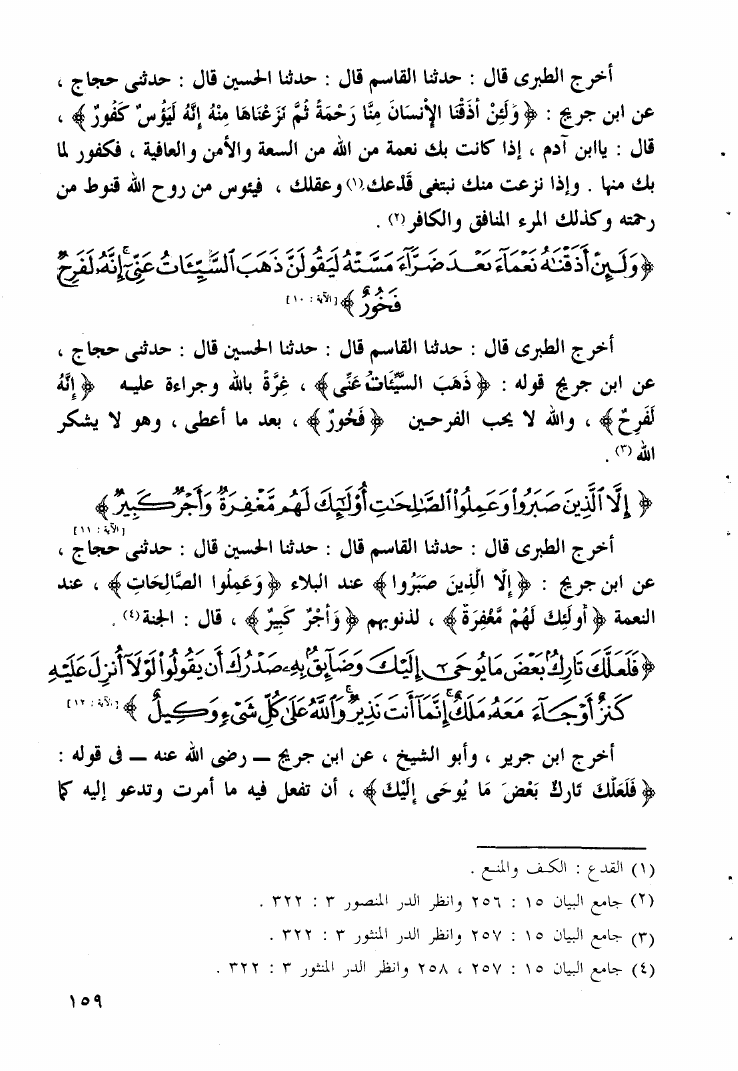 أخرج الطبرى قال : حدثنا القاسم قال : حدثنا الحسين قال : حدثنى حجاج ،
عن ابن جريج : ﴿ وَلَئِنْ أَذَقْنَا الإنسَانَ مِنَّا رَحْمَةً ثُمَّ نَزَعْنَاهَا مِنْهُ إِنَّهُ لَيَؤُسٌ كَفُورٌ ﴾ ،
قال : ياابن آدم ، إذا كانت بك نعمة من الله من السعة والأمن والعافية ، فكفور لما
بك منها . وإذا نزعت منك نبتغى قَدْعك(١) وعقلك ، فيئوس من روح الله قنوط من
رحمته وكذلك المرء المنافق والكافر(٢) .
﴿ وَلَئِنْ أَذَقْنَٰهُ نَعْمَآءَ بَعْدَ ضَرَّآءَ مَسَّتْهُ لَيَقُولَنَّ ذَهَبَ ٱلسَّيِّـَٔاتُ عَنِّىٓ إِنَّهُۥ لَفَرِحٌ
فَخُورٌ ﴾ [الآية : ١٠]
أخرج الطبرى قال : حدثنا القاسم قال : حدثنا الحسين قال : حدثنى حجاج ،
عن ابن جريج قوله : ﴿ ذَهَبَ السَّيِّئَاتُ عَنِّى ﴾ ، غِرَّةً بالله وجراءة عليه ﴿ إِنَّهُ
لَفَرِحٌ ﴾ ، والله لا يحب الفرحين ﴿ فَخُورٌ ﴾ ، بعد ما أعطى ، وهو لا يشكر
الله (٣) .
﴿ إِلَّا ٱلَّذِينَ صَبَرُوا۟ وَعَمِلُوا۟ ٱلصَّٰلِحَٰتِ أُو۟لَٰٓئِكَ لَهُم مَّغْفِرَةٌ وَأَجْرٌ كَبِيرٌ ﴾
[الآية : ١١]
أخرج الطبرى قال : حدثنا القاسم قال : حدثنا الحسين قال : حدثنى حجاج ،
عن ابن جريج : ﴿ إِلَّا الَّذِينَ صَبَرُوا ﴾ عند البلاء ﴿ وَعَمِلُوا الصَّالِحَاتِ ﴾ ، عند
النعمة ﴿ أُولَئِكَ لَهُمْ مَّغْفِرَةٌ ﴾ ، لذنوبهم ﴿ وَأَجْرٌ كَبِيرٌ ﴾ ، قال : الجنة(٤) .
﴿ فَلَعَلَّكَ تَارِكٌۢ بَعْضَ مَا يُوحَىٰٓ إِلَيْكَ وَضَآئِقٌۢ بِهِۦ صَدْرُكَ أَن يَقُولُوا۟ لَوْلَآ أُنزِلَ عَلَيْهِ
كَنزٌ أَوْ جَآءَ مَعَهُۥ مَلَكٌ إِنَّمَآ أَنتَ نَذِيرٌ وَٱللَّهُ عَلَىٰ كُلِّ شَىْءٍ وَكِيلٌ ﴾ [الآية : ١٢]
أخرج ابن جرير ، وأبو الشيخ ، عن ابن جريج ــ رضى الله عنه ــ فى قوله :
﴿ فَلَعَلَّكَ تَارِكٌ بَعْضَ مَا يُوحَى إِلَيْكَ ﴾ ، أن تفعل فيه ما أمرت وتدعو إليه كما
(١) القدع : الكف والمنع .
(٢) جامع البيان ١٥ : ٢٥٦ وانظر الدر المنصور ٣ : ٣٢٢ .
(٣) جامع البيان ١٥ : ٢٥٧ وانظر الدر المنثور ٣ : ٣٢٢ .
(٤) جامع البيان ١٥ : ٢٥٧ ، ٢٥٨ وانظر الدر المنثور ٣ : ٣٢٢ .
١٥٩